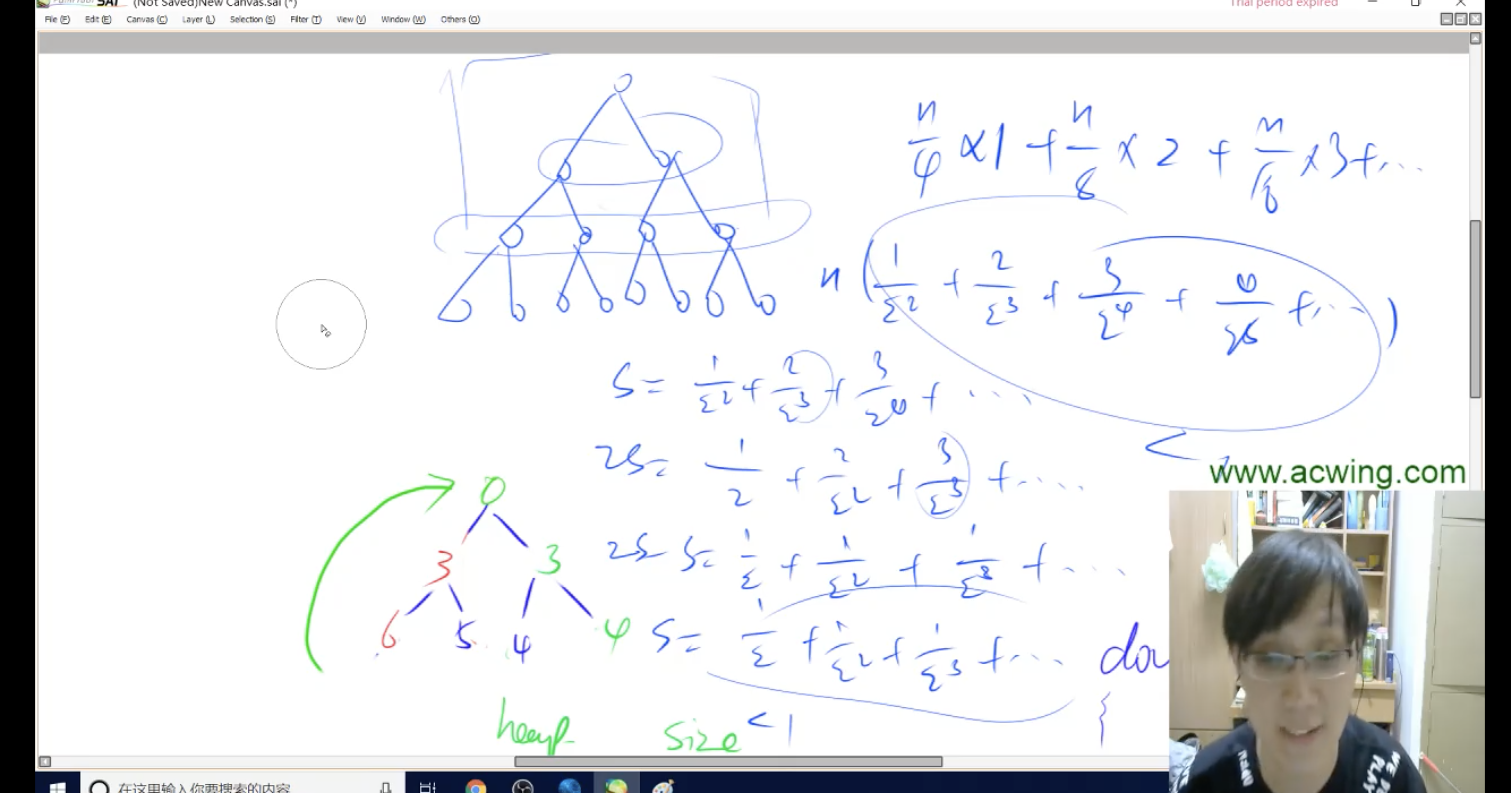 SAI (Not Saved)New Canvas.sai (*)
Trial period expired
File (F) Edit (E) Canvas (C) Layer (L) Selection (S) Filter (T) View (V) Window (W) Others (O)
n/4 ×1 + n/8 × 2 + n/16 ×3+...
n (1/2² + 2/2³ + 3/2⁴ + 4/2⁵ +...)
S= 1/2² + 2/2³ + 3/2⁴ + ....
2S= 1/2 + 2/2² + 3/2³ + ....
2S-S= 1/2 + 1/2² + 1/2³ + ...
S= 1/2 + 1/2² + 1/2³ +...
<1
<
www.acwing.com
0
3 3
6 5 4 4
heap size
{
在这里输入你要搜索的内容